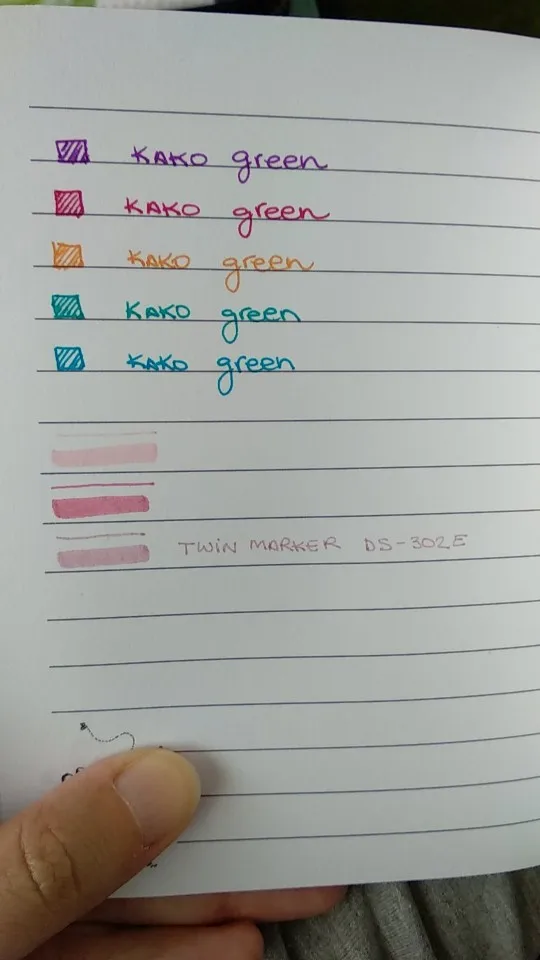 KAKO green
KAKO green
KAKO green
KAKO green
KAKO green
TWIN MARKER DS-302E